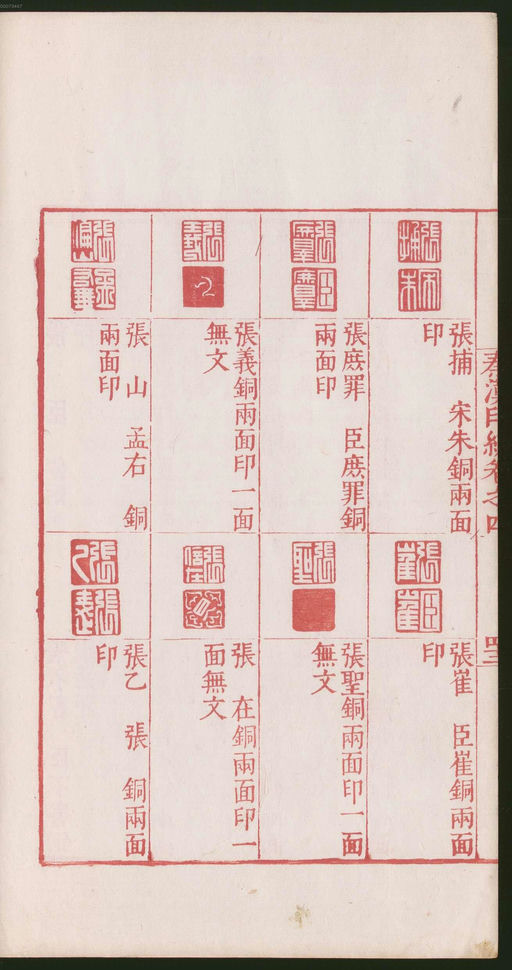 00073447
秦漢印統卷之四
四三
張捕　宋朱銅兩面
印
張庶罪　臣庶罪銅
兩面印
張義銅兩面印一面
無文
張　山　孟右　銅
兩面印
張崔　臣崔銅兩面
印
張聖銅兩面印一面
無文
張　在銅兩面印一
面無文
張乙　張　銅兩面
印